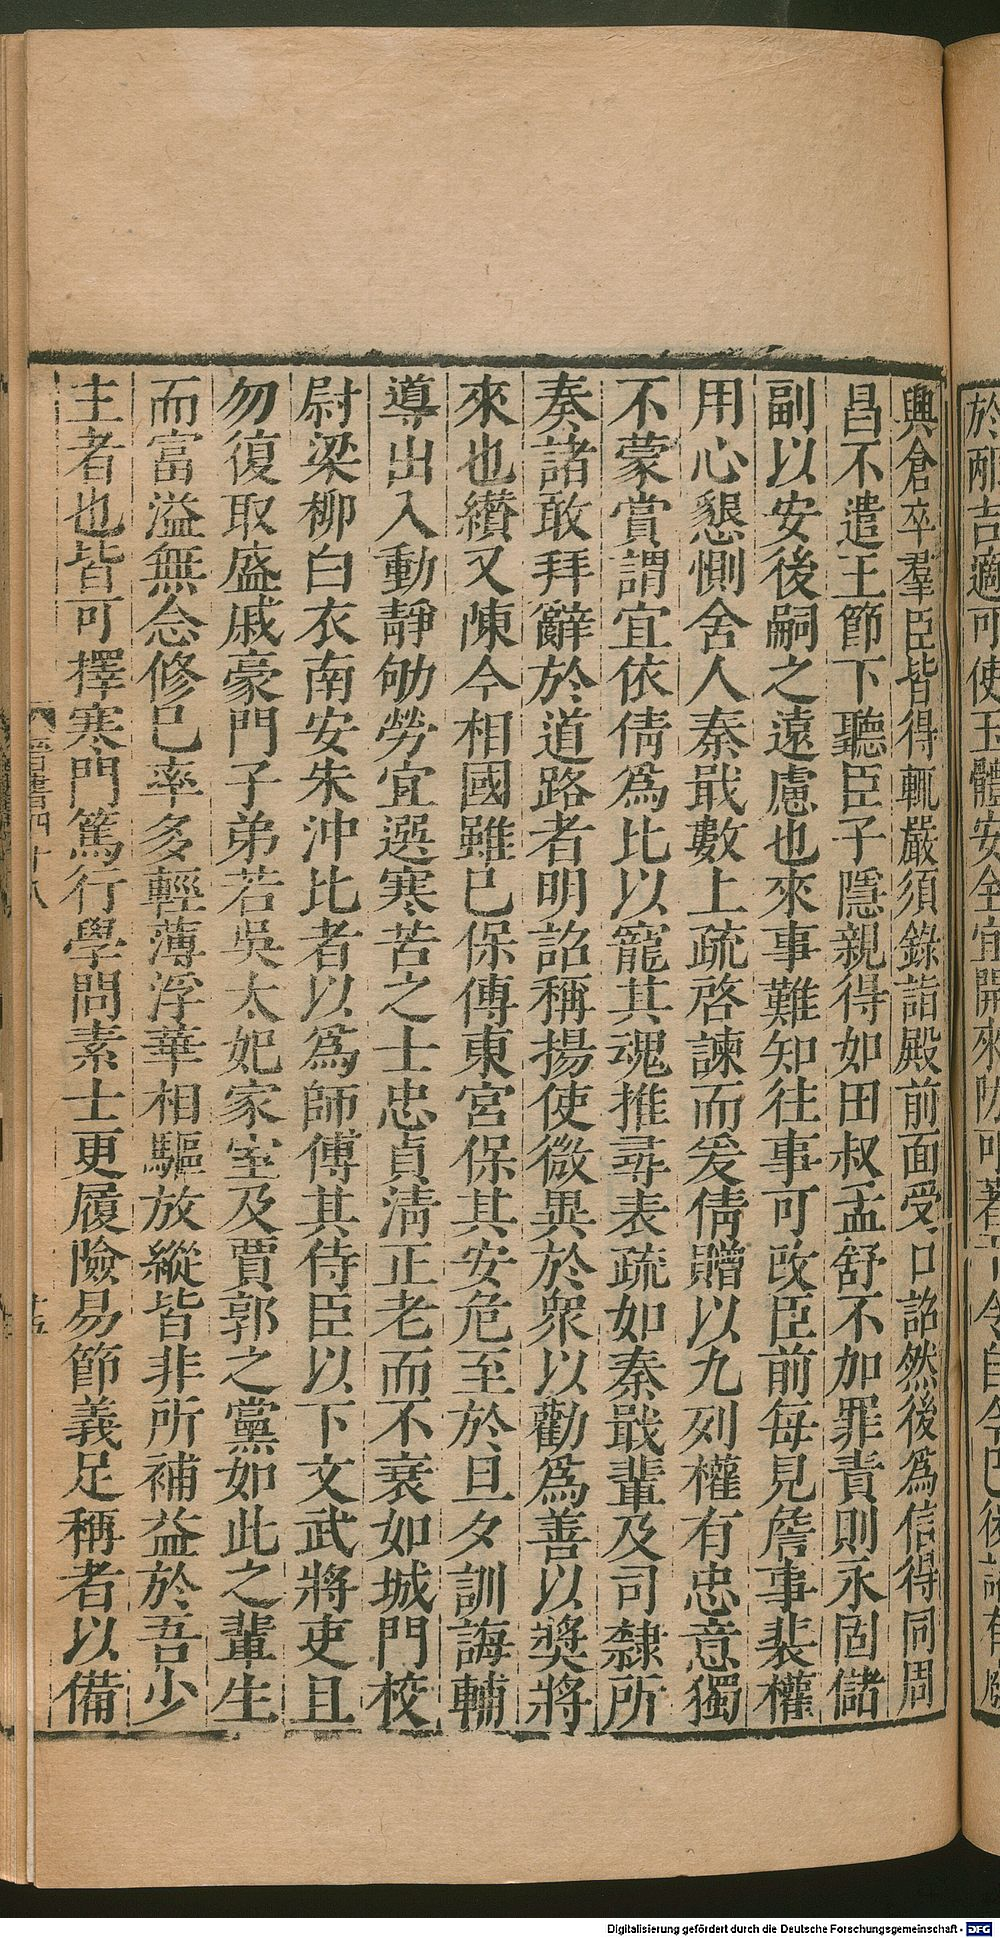 輿倉卒羣臣皆得輒嚴須錄詣殿前面受口詔然後爲信得同周
昌不遣王節下聽臣子隱親得如田叔孟舒不加罪責則永固儲
副以安後嗣之遠慮也來事難知往事可改臣前每見詹事裴權
用心懇惻舍人秦戢數上疏啓諫而爰倩贈以九列權有忠意獨
不蒙賞謂宜依倩爲比以寵其魂推尋表疏如秦戢輩及司隸所
奏諸敢拜辭於道路者明詔稱揚使微異於衆以勸爲善以奬將
來也纉又陳今相國雖已保傅東宮保其安危至於旦夕訓誨輔
導出入動靜劬勞宜選寒苦之士忠貞清正老而不衰如城門校
尉梁柳白衣南安朱沖比者以爲師傅其侍臣以下文武將吏且
勿復取盛戚豪門子弟若吳太妃家室及賈郭之黨如此之輩生
而富溢無念修已率多輕薄浮華相驅放縱皆非所補益於吾少
主者也皆可擇寒門篤行學問素士更履險易節義足稱者以備
晉書四十八
Digitalisierung gefördert durch die Deutsche Forschungsgemeinschaft - DFG